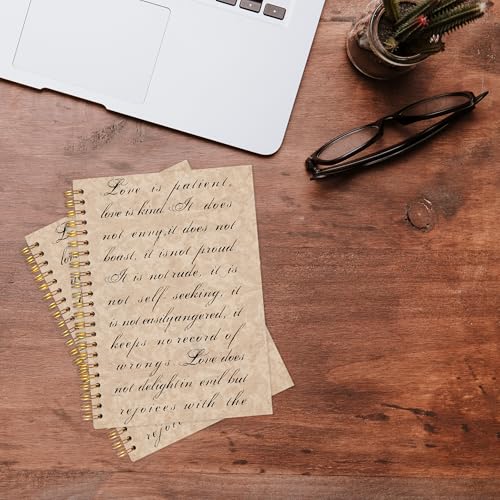 Love is patient,
love is kind. It does
not envy, it does not
boast, it is not proud
It is not rude, it is
not self seeking, it
is not easily angered, it
keeps no record of
wrongs. Love does
not delight in evil but
rejoices with the
rejoi